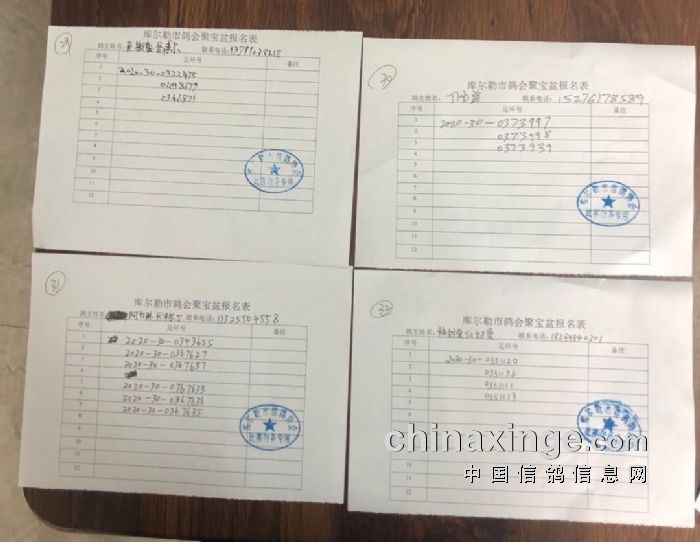 29
库尔勒市鸽会聚宝盆报名表
鸽主姓名: 联系电话:
序号 足环号 备注
1 2020-30-0322475
2
3 0346871
4
5
6
7
8
9
10
11
12
30
库尔勒市鸽会聚宝盆报名表
鸽主姓名: 联系电话: 15276178589
序号 足环号 备注
1 2020-30-0373997
2 0373998
3 0373939
4
5
6
7
8
9
10
11
12
库尔勒市信鸽协会
比赛财务专用
31
库尔勒市鸽会聚宝盆报名表
鸽主姓名: 联系电话: 13255504558
序号 足环号 备注
1 2020-30-0343655
2 2020-30-0367627
3 2020-30-0367637
4
5 2020-30-0367633
6 2020-30-0367636
7 2020-30-0367635
8
9
10
11
12
库尔勒市信鸽协会
比赛财务专用
库尔勒市鸽会聚宝盆报名表
鸽主姓名: 联系电话: 18299840201
序号 足环号 备注
1 2020-30-0331120
2 0331136
3
4 0331139
5
10
11
12
chinaxinge.com
中国信鸽信息网